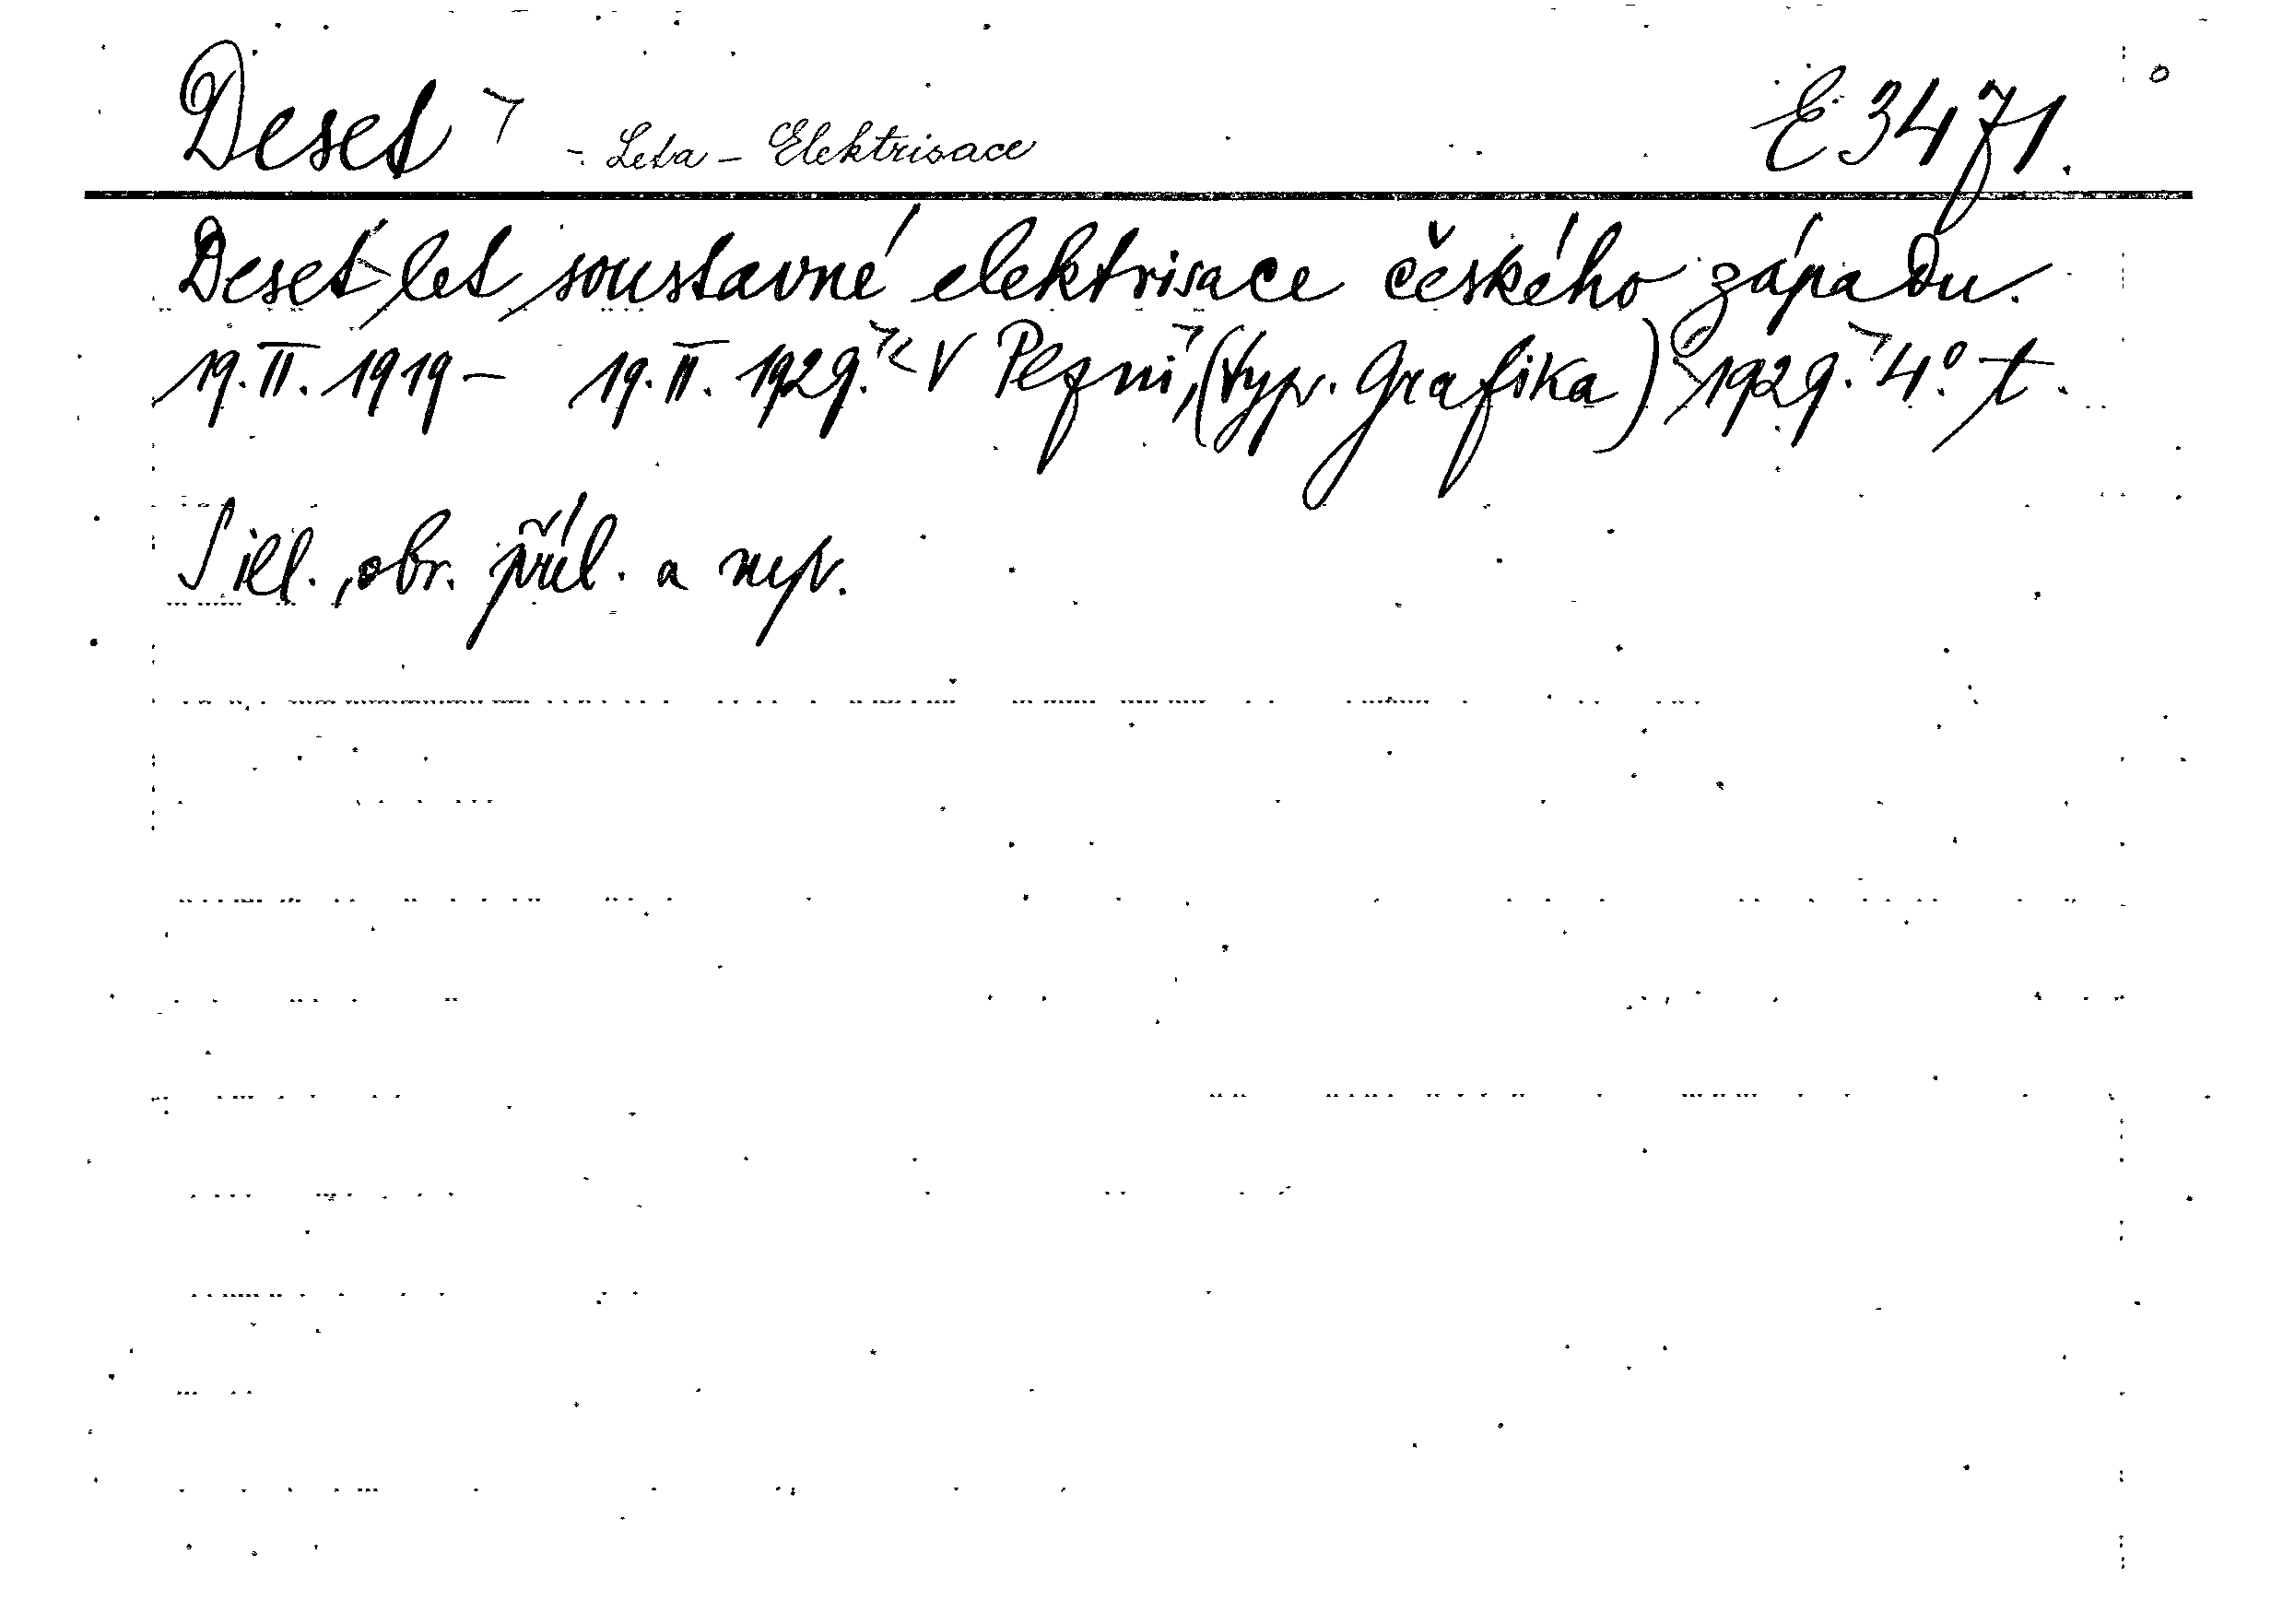 Deset - Leta - Elektrisace E 3471.
Deset let soustavné elektrisace českého západu.
19. II. 1919 - 19. II. 1929. V Plzni, (typ. Grafika) 1929. 4° t.
S ill., obr. příl. a